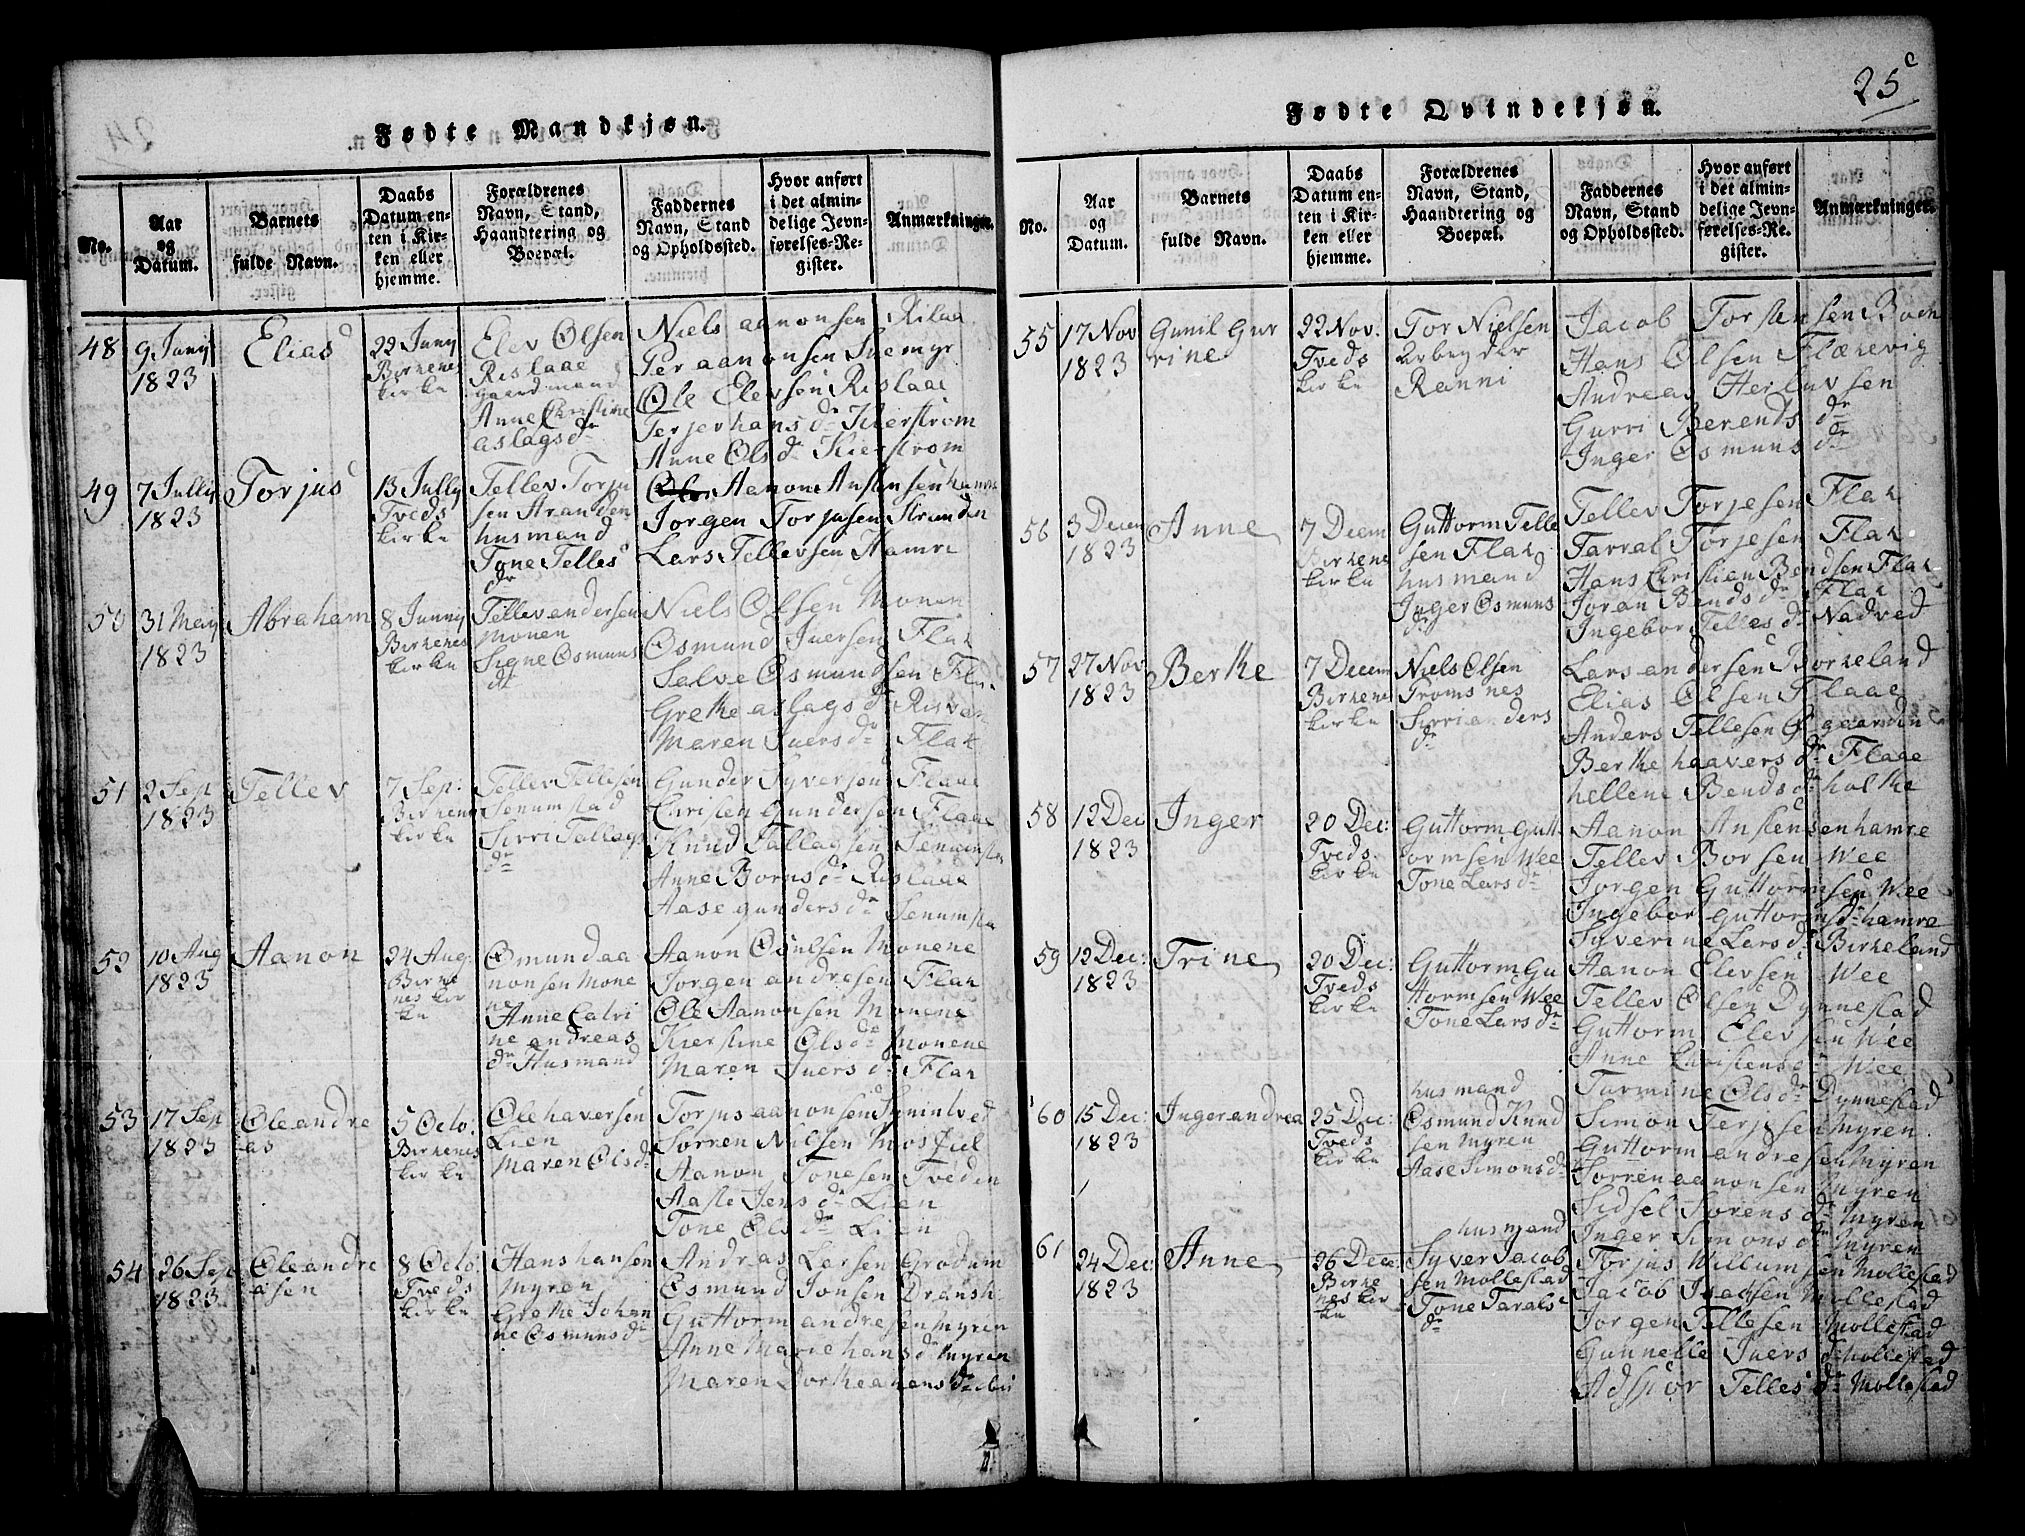 Fødte Mandkjøn.
No.
Aar og Datum.
Barnets fulde Navn.
Daabs Datum enten i Kirken eller hjemme.
Forældrenes Navn, Stand, Haandtering og Boepæl.
Faddernes Navn, Stand og Opholdssted.
Hvor anført i det almindelige Jevnførelses-Register.
Anmærkninger.
48
9 Juny
1823
Elias
22 Juny
Birkenes
kirke
Elev Olsen
Rislaae
gaardmand
Anne Christine
aslagsdr
Niels aanonsen Rilaa
Per aanonsen Suemyr
Ole Elevsen Rislaae
Terjer hansdr Kierstrom
Anne Olsdr Kierstrom
49
7 Jully
1823
Torjus
13 Jully
Tveds
kirke
Tellev Torju
sen Stranden
husmand
Tone Telles
dr
Aanon Anstensen hamre
Jorgen Torjusen Stranden
Lars Tellevsen Hamre
50
31 May
1823
Abraham
8 Junny
Birkenes
kirke
Tellev andersen
Monen
Signe Osmuns
dr
Niels Olsen Monen
Osmund Juersen Flak
Salve Osmundsen Flak
Grethe aslagsdr Risvan
Maren Juersdr Flak
51
2 Sep
1823
Tellev
7 Sep:
Birkenes
kirke
Tellev Tellesen
Senumstad
Sirri Tallags
dr
Gunder Syversen Flaae
Christen Gundersen Flaae
Knud Tallagsen Senumsta
Anne Bornsdr Rislaae
Aase gundersdr Senumsta
52
10 Aug
1823
Aanon
24 Aug:
Birke
nes kir
ke
Osmund aa
nonsen Mone
ne
Anne Catri
ne andreas
dr Husmand
Aanon Osulsen Monene
Jorgen andresen Flak
Ole Aanonsen Monene
Kierstine Olsdr Monene
Maren Juersdr Flak
53
17 Sep
1823
Ole andre
as
5 Octo:
Birkenes
kirke
Ole haversen
Lien
Maren Olsdr
Torjus aanonsen
Sorren Nilsen Mosfiel
Aanon Tonesen Tveden
Aaste Jensdr Lien
Tone Olsdr Lien
54
26 Sep
1823
Ole andre
asen
8 Octo:
Tveds
kirke
Hans hansen
Myren
Grethe Johan
ne Osmunsdr
Andras Larsen Grodum
Osmund Jonsen Dransh
Guttorm andresen Myren
Anne Marie hansdr Myren
Maren Dorthea
Fødte Qvindekjøn.
25
No.
Aar og Datum.
Barnets fulde Navn.
Daabs Datum enten i Kirken eller hjemme.
Forældrenes Navn, Stand, Haandtering og Boepæl.
Faddernes Navn, Stand og Opholdssted.
Hvor anført i det almindelige Jevnførelses-Register.
Anmærkninger.
55
17 Nov
1823
Gunil Gur
rine
22 Nov.
Tveds
kirke
Tor Nielsen
Arbeyder
Ranni
Jacob Torstensen Boch
Hans Olsen Flækevig
Andreas Herluvsen
Gurri Berends dr
Inger Osmuns dr
56
3 Decem
1823
Anne
7 Decem
Birkene
kirke
Guttorm Telle
sen Flak
husmand
Inger Osmuns
dr
Tellev Torjesen Flak
Tarral Torjesen Flak
Hans Christian Bendsen Flak
Joran Bendsdr Flak
Ingebor Tellesdr Nadved
57
27 Nov
1823
Berthe
7 Decem
Birkene
kirke
Niels Olsen
Tromsnes
Sirri anders
dr
Lars andersen Borkeland
Elias Olsen Flaae
Anders Tellesen Øgaarden
Berthe haaversdr Flaae
hellene Bendsdr holthe
58
12 Dec
1823
Inger
20 Dec:
Tveds
kirke
Guttorm Gutt
ormsen Wee
Tone Larsdr
Aanon Anstensen hamre
Tellev Borsen Wee
Jorgen Guttormsen Wee
Ingebor guttormsdr hamre
Syverine Larsdr Birkeland
59
12 Dec:
1823
Trine
20 Dec:
Tveds
kirke
Guttorm Gu
ttormsen Wee
Tone Larsdr
Aanon Elevsen Wee
Tellev Olsen Dynnestad
Guttorm Elevsen Wee
Anne Christensdr Wee
Tarmine Olsdr Dynnestad
60
15 Dec:
1823
Inger andrea
25 Dec:
Tveds
kirke
husmand
Osmund Knud
sen Myren
Aase Simonsdr
Simon Terjesen Myren
Guttorm andresen Myren
Sorren aanonsen Myren
Sidsel Sørensdr Myren
Inger Simonsdr Myren
61
24 Dec:
1823
Anne
26 Dec:
Birke
nes kir
ke
husmand
Syver Jacob
sen Mollestad
Tone Tarals
dr
Torjus Willumsen Mollestad
Jacob Isachsen Mollestad
Jorgen Tellesen Mollestad
Gunnelle Juers dr Mollestad
Adspor Telles dr Mollestad